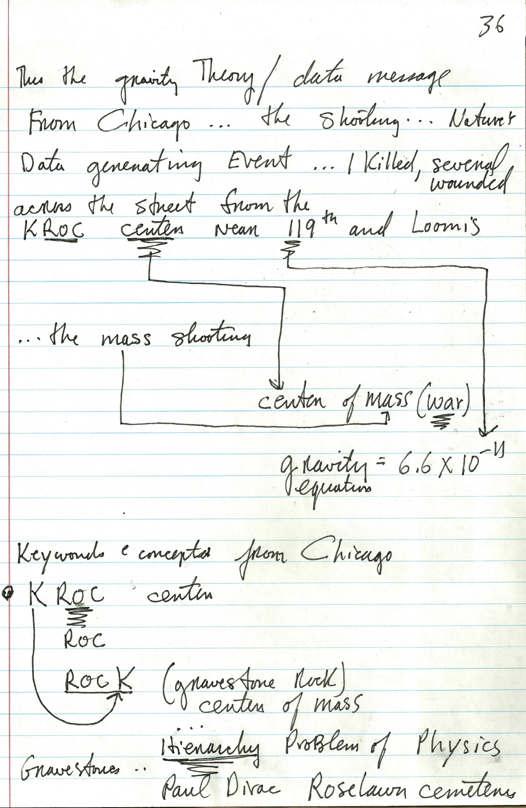 36
Thus the gravity Theory/data message
From Chicago ... the shooting... Nature's
Data generating Event ... 1 Killed, several
wounded
across the street from the
KROC center near 119th and Loomis
... the mass shooting
center of mass (war)
gravity = 6.6 X 10^-11
equation
Keywords & concepts from Chicago
• K ROC center
ROC
ROCK (gravestone Rock)
center of mass
...
Hierarchy Problem of Physics
Gravestones ..
Paul Dirac Roselawn cemetery